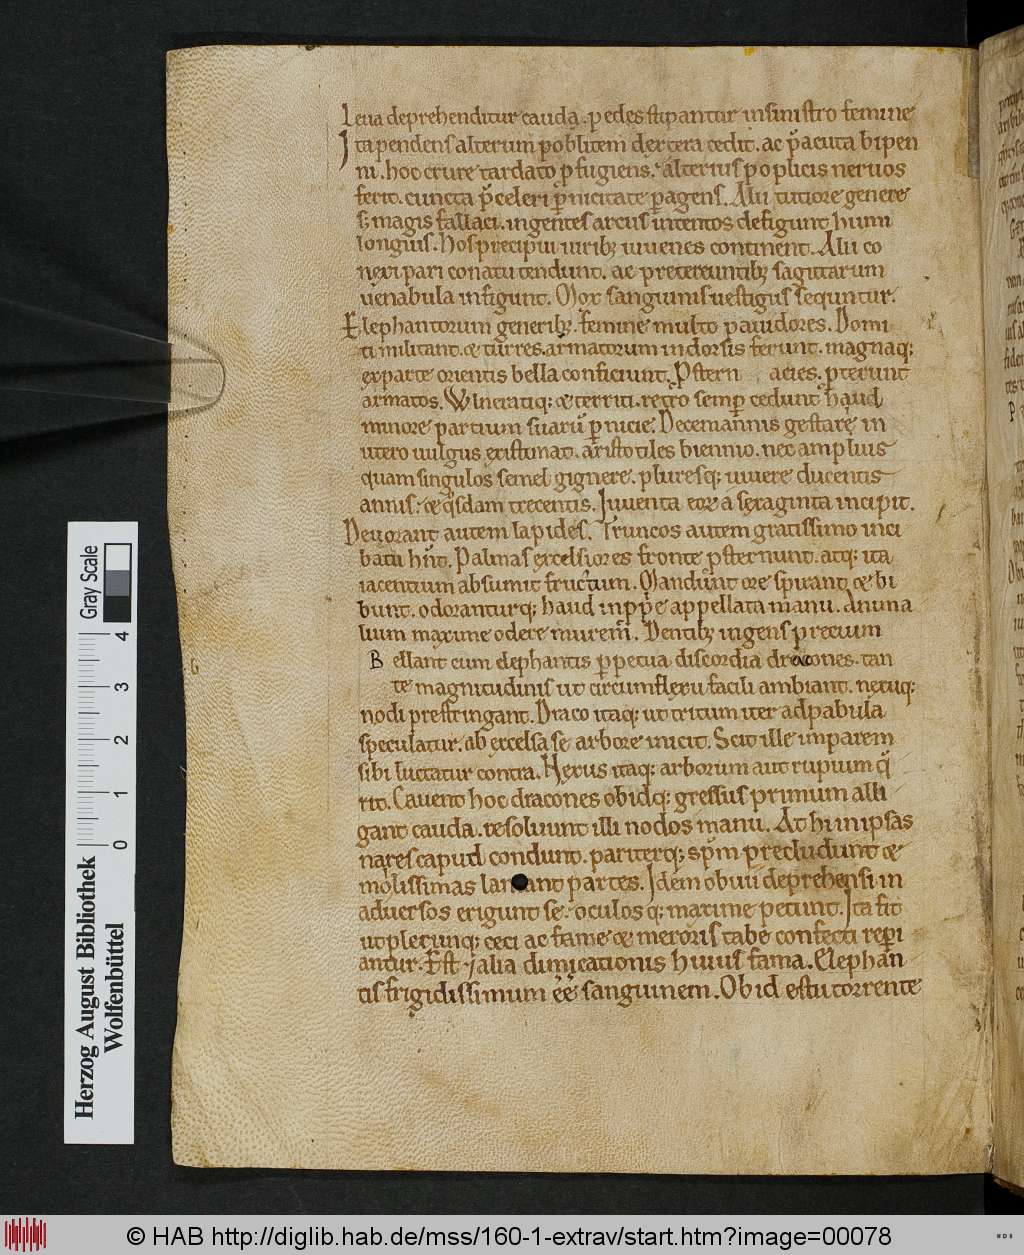 Leua deprehenditur cauda. pedes stipantur in sinistro femine
Ita pendens alterum poblitem dextera cedit. ac p̄acuta bipen
ni. hoc crure tardato ꝓfugiens. alterius poplicis neruos
ferit. cuncta p̄celeri ꝑnicitate ꝑagens. Alii tutiore genere
s; magis fallaci. ingentes arcus intentos defigunt humi
longius. hos precipui uirib; iuuenes continent. Alii co
nexi pari conatu tendunt. ac pretereuntib; sagittarum
uenabula infigunt. Mox sanguinis uestigiis sequntur.
Elephantorum generib; femine multo pauidores. Domi
ti militant. & turres armatorum in dorsis ferunt. magnaq;
ex parte orientis bella conficiunt. Ꝓstern acies. ꝓterunt
armatos. Wlneratiq; & territi. retro semꝑ cedunt haud
minore partium suarū ꝑnicie. Decem annis gestare in
utero uulgus existimat. aristotiles biennio. nec amplius
quam singulos semel gignere. pluresq; uiuere ducentis
annis. & q̇sdam trecentis. Iuuenta eoꝝ a sexaginta incipit.
Deuorant autem lapides. Truncos autem gratissimo in ci
batu hn̄t. Palmas excelsiores fronte ꝓsternunt. atq; ita
iacentium absumit fructum. Mandunt ore spirant & bi
bunt. odoranturq; haud inꝓꝑe appellata manu. Anima
lium maxime odere murem. Dentib; ingens precium
Bellant cum elephantis ꝑpetua discordia dracones. tan
te magnitudinis ut circumflexu facili ambiant. nexuq;
nodi prestringant. Draco itaq; ut tritum iter ad pabula
speculatur. ab excelsa se arbore inicit. Scit ille imparem
sibi luctatur contra. Nexus itaq; arborum aut rupium q̄
rit. Cauent hoc dracones ob idq; gressus primum alli
gant cauda. resoluunt illi nodos manu. At hi in ipsas
nares capud condunt. pariterq; spm̄ precludunt &
molissimas lan ant partes. Idem obuii deprehensi in
aduersos erigunt se. oculosq; maxime petunt. Ita fit
ut plerunq; ceci ac fame & meroris tabe confecti reꝑi
antur. Est & alia dimicationis huius fama. Elephan
tis frigidissimum ēē sanguinem. Ob id estu torrente
6
Gray Scale
4
3
2
1
0
Herzog August Bibliothek
Wolfenbüttel
© HAB http://diglib.hab.de/mss/160-1-extrav/start.htm?image=00078